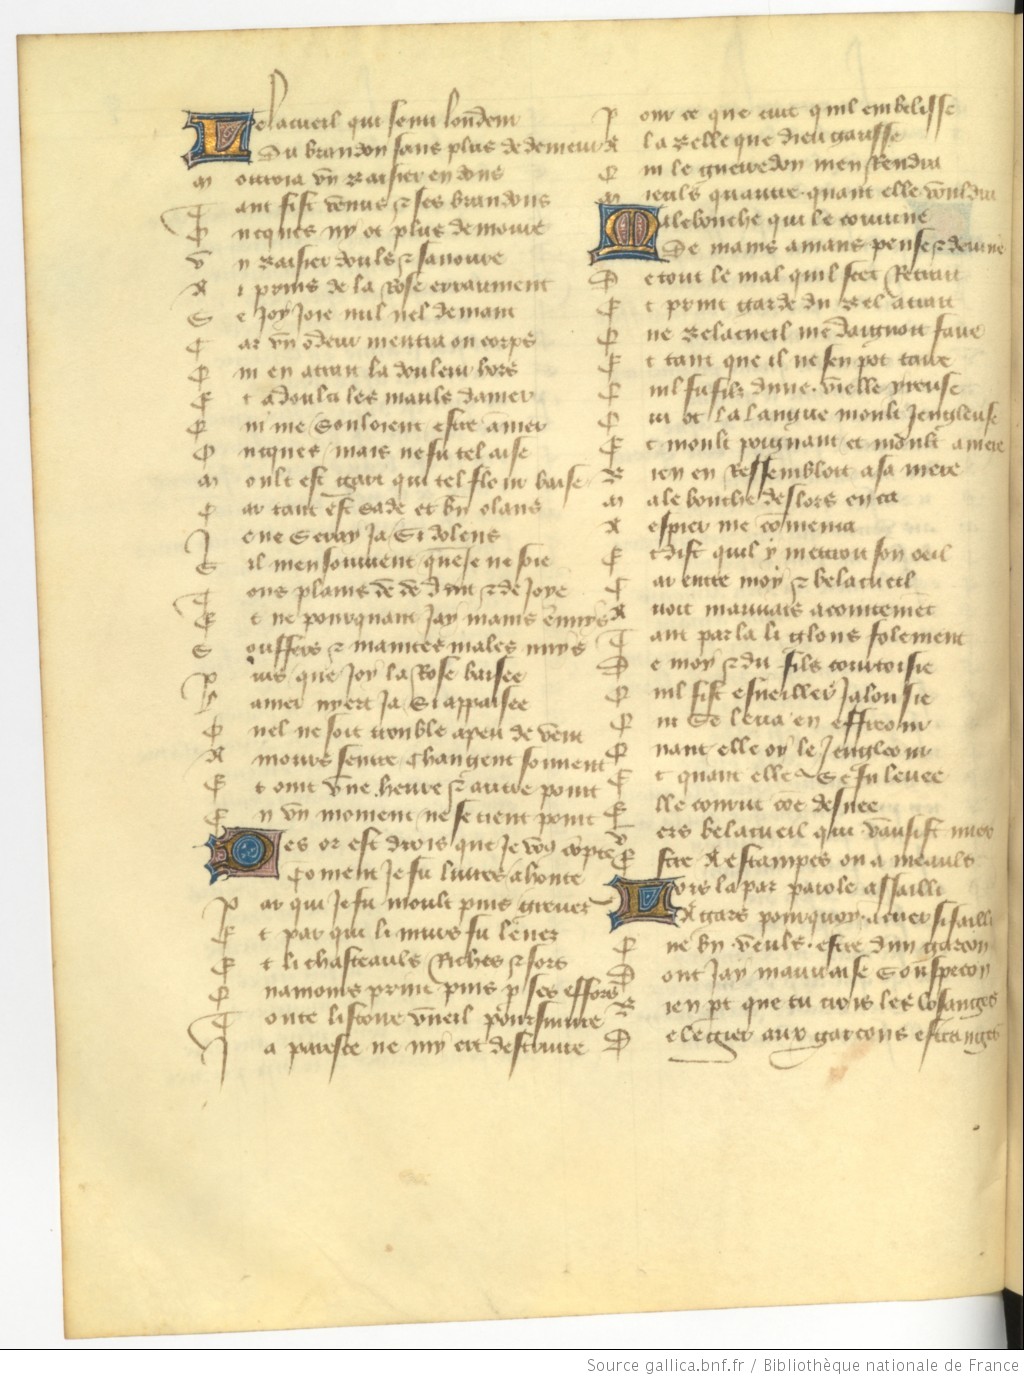 Lelacueil qui senti londeur
Du brandon sans plus de demeur
M ottroia vn baisier en dons
Tant fist venus & ses brandons
Oncques ny ot plus demoure
Vn baisier doulz & sauoure
A i prins de la Rose erraument
Se joy joie nul nel demant
Car vn odeur mentra ou corps
Qui en a trait la douleur hors
Et adoulci les maulx damer
Qui me souloient estre amer
Oncques mais ne fu tel aise
Moult est gari qui tel flour baise
Car tant est sade et bn olans
Je ne seray ja si dolens
Sil men souuient que je ne soie
Tous plains de delit & de joye
Et ne pourquant jay mains ennuys
Souffers & maintes males nuys
Puis que joy la Rose baisee
La mer nyert ja si appaisee
Quel ne soit trouble a peu de vent
Amours sentre changent souuent
Et oint vne heure & autre point
En vn moment ne se tient point
Des or est drois que je vous compte
Coment je fu luttes a honte
Par qui je fu moult puis greuez
Et par qui li murs fu leuez
Et li chasteaulx Riches & fors
Quamours print puis p ses effors
Toute listoire vueil poursuiure
Ja paresce ne my ert descriure
Pour ce que cuit quil embelisse
A la belle que dieu garisse
Qui le guerredon men Rendra
Mieulx quautre quant elle vouldra
Malebouche qui le couuine
De mains amans pense & deuine
Et tout le mal quil scet Retrait
Et print garde du bel atrait
Que belacueil me daignoit faire
Et tant que il ne sen pot taire
Quil fu filz dune vielle yreuse
Qui ot la langue moult jengleuse
Et moult poignant et moult amere
Bien en Ressembloit a sa mere
Malebouche deslors en ca
A espier me comenca
Et dist quil y mettroit son oeil
Car entre moy & belacueil
Auoit mauuais acointement
Tant parla li glous folement
De moy & du filz courtoisie
Quil fist esueiller jalousie
Qui se leua en effreour
Quant elle oy le jengleour
Et quant elle se fu leuee
Elle courut coe desuee
Vers belacueil qui vausist mieux
Estre a estampes ou a meaulx
Lors la par parole assailli
Gars pourquoy a cuer si failli
Que bn veulx estre dun garcon
Dont jay mauuaise souspecon
Bien pt que tu crois les losanges
De legier aux garcons estranges